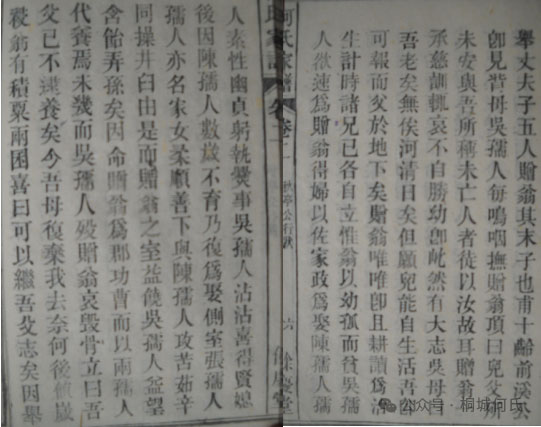 舉丈夫子五人贈翁其末子也甫十齡前溪公
卽見背母吳孺人每嗚咽撫贈翁項曰兒父
未安與吾所稱未亡人者徒以汝故耳贈翁
承慈訓輒哀不自勝幼卽屹然有大志吳母
吾老矣無俟河清日矣但願兒能自生活吾
可報而父於地下矣贈翁唯唯卽且耕讀爲治
生計時諸兄已各自立惟翁以幼孤而貧吳孺
人欲速爲贈翁得婦以佐家政爲娶陳孺人孺
何氏家譜 卷二 秋亭公行狀 六 餘慶堂
人素性幽貞躬執爨事吳孺人沾沾喜得賢媳
後因陳孺人數歲不育乃復爲娶側室張孺人
孺人亦名家女柔順善下與陳孺人攻苦茹辛
同操井臼由是而贈翁之室益饒吳孺人益望
含飴弄孫矣因命贈翁爲郡功曹而以兩孺人
代養焉未幾而吳孺人歿贈翁哀毀骨立曰吾
父已不逮養矣今吾母復棄我去奈何後値歲
祲翁有積粟兩囷喜曰可以繼吾父志矣因舉
公众号·桐城何氏